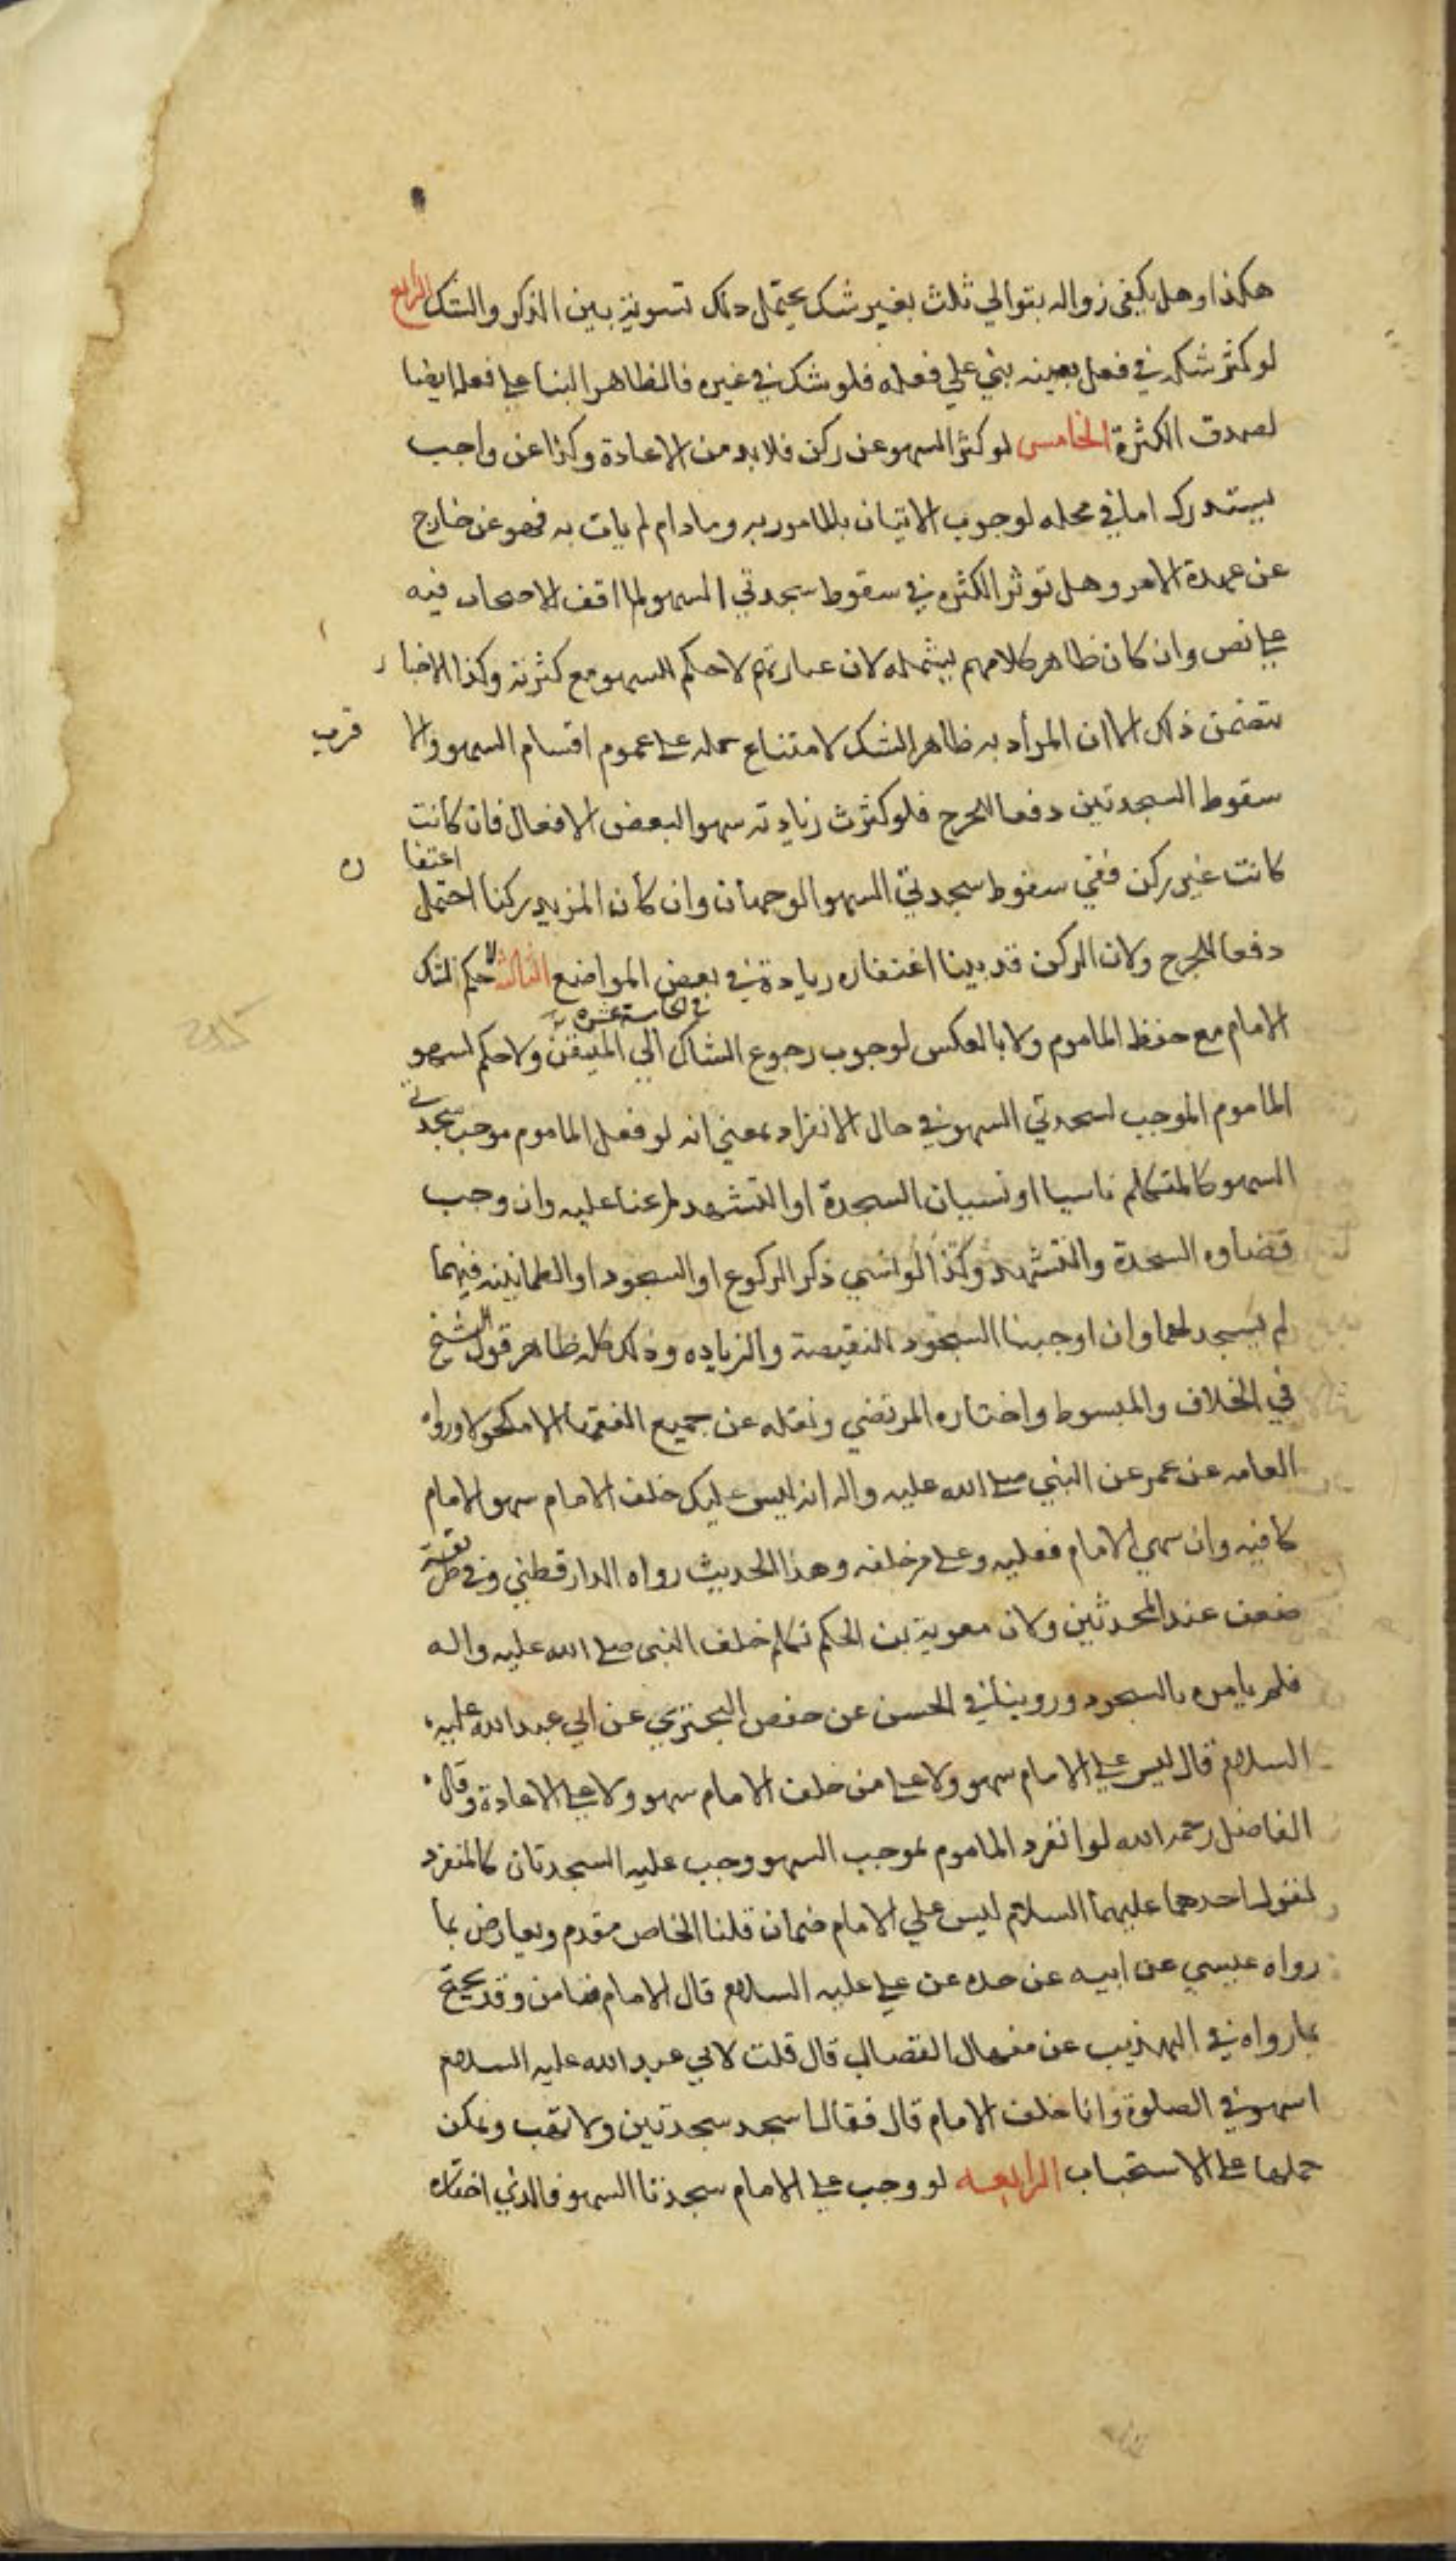 هكذا وهل يكفي زواله بتوالي ثلث بغير شك يحتمل ذلك تسوية بين الذكر والشك الرابع
لو كثر شكه في فعل بعينه بني علي فعله فلو شك في غيره فالظاهر البنا علي فعله ايضا
لصدق الكثرة الخامس لو كثر السهو عن ركن فلا بد من الاعادة وكذا عن واجب
يستدرك اما في محله لوجوب الاتيان بالمامور به وما دام لم يات به فهو عن خارج
عن عهدة الامر وهل توثر الكثره في سقوط سجدتي السهو لم اقف للاصحاب فيه
علي نص وان كان ظاهر كلامهم يشمله لان عبارتهم لا حكم للسهو مع كثرته وكذا الاخبار
تتضمن ذلك الا ان المراد به ظاهر الشك لامتناع حمله علي عموم اقسام السهو والا قرب
سقوط السجدتين دفعا للحرج فلو كثرت زيادته سهوا لبعض الافعال فان كانت
كانت غير ركن ففي سقوط سجدتي السهو الوجهان وان كان المزيد ركنا احتمل اغتفا ره
دفعا للحرج ولان الركن قد بينا اغتفاره زيادة في بعض المواضع الثالثه لا حكم لشك
في الخامسة عشره
الامام مع حفظ الماموم ولا بالعكس لوجوب رجوع الشاك الي المتيقن ولا حكم لسهو
الماموم الموجب لسجدتي السهو في حال الانفراد بمعني انه لو فعل الماموم موجب سجدتي
السهو كالمتكلم ناسيا او نسيان السجدة او التشهد لم يجب عليه وان وجب
قضاوه السجدة والتشهد وكذا لو نسي ذكر الركوع او السجود او الطمانينه فيهما
لم يسجد لهما وان اوجبنا السجود للنقيصة والزياده وذلك كله ظاهر قول الشيخ
في الخلاف والمبسوط واختاره المرتضي ونقله عن جميع الفقها الا مكحولا ورواه
العامه عن عمر عن النبي صلي الله عليه واله انه ليس عليك خلف الامام سهو الامام
كافيه وان سهي الامام فعليه وعلي من خلفه وهذا الحديث رواه الدارقطني وفي طريقه
ضعف عند المحدثين ولان معوية بن الحكم تكلم خلف النبي صلي الله عليه واله
فلم يامره بالسجود وروينا في الحسن عن حفص البختري عن ابي عبد الله عليه
السلام قال ليس علي الامام سهو ولا علي من خلف الامام سهو ولا علي الاعادة وقال
الفاضل رحمه الله لو انفرد الماموم بموجب السهو وجب عليه السجدتان كالمنفرد
لقول احدهما عليهما السلام ليس علي الامام ضمان قلنا الخاص مقدم ويعارض بما
رواه عيسي عن ابيه عن جده عن علي عليه السلام قال الامام ضامن وقد يحتج
بما رواه في التهذيب عن منهال القصاب قال قلت لابي عبد الله عليه السلام
اسهو في الصلوة وانا خلف الامام قال فقال اسجد سجدتين ولا تهب ويمكن
حملها علي الاستحباب الرابعه لو وجب علي الامام سجدتا السهو فالذي اختاره